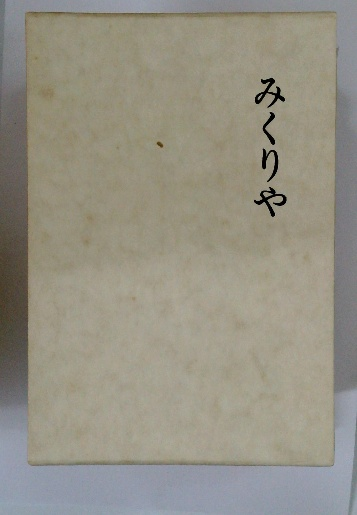 みくりや